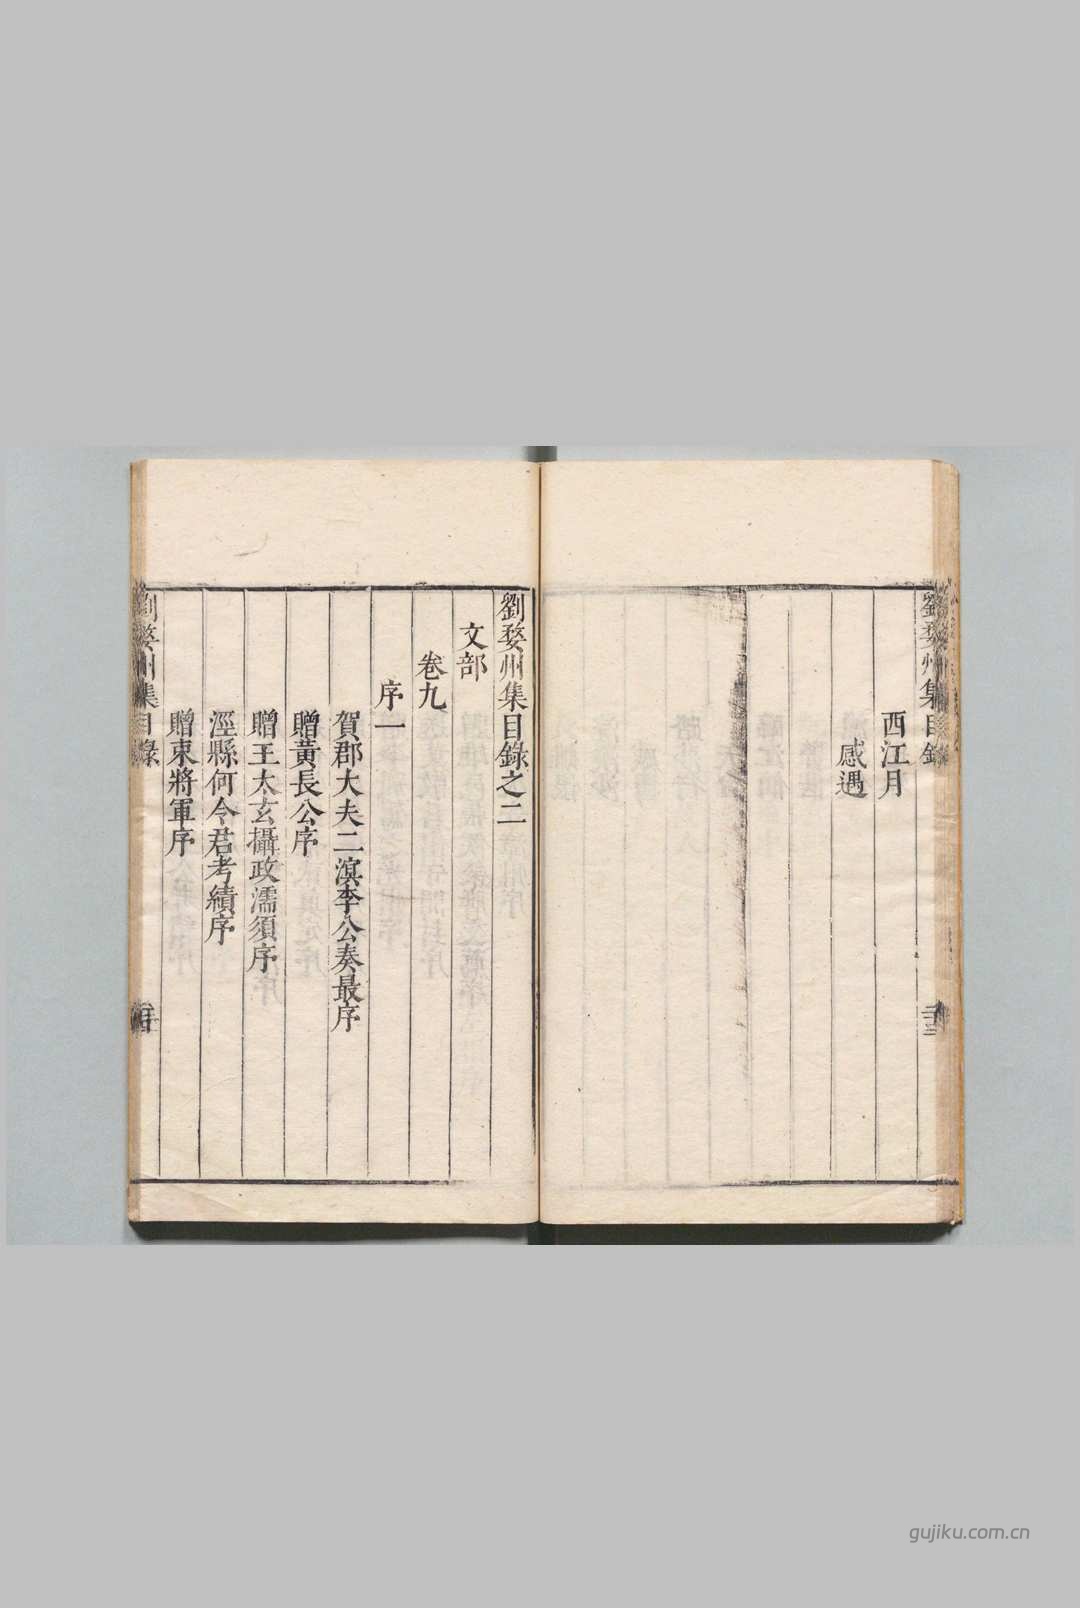 劉婺州集目錄
西江月
感遇
二十三
劉婺州集目錄之二
文部
卷九
序一
賀郡大夫二溟李公奏最序
贈黃長公序
贈王太玄攝政濡須序
涇縣何令君考績序
贈束將軍序
劉婺州集目錄
gujiku.com.cn